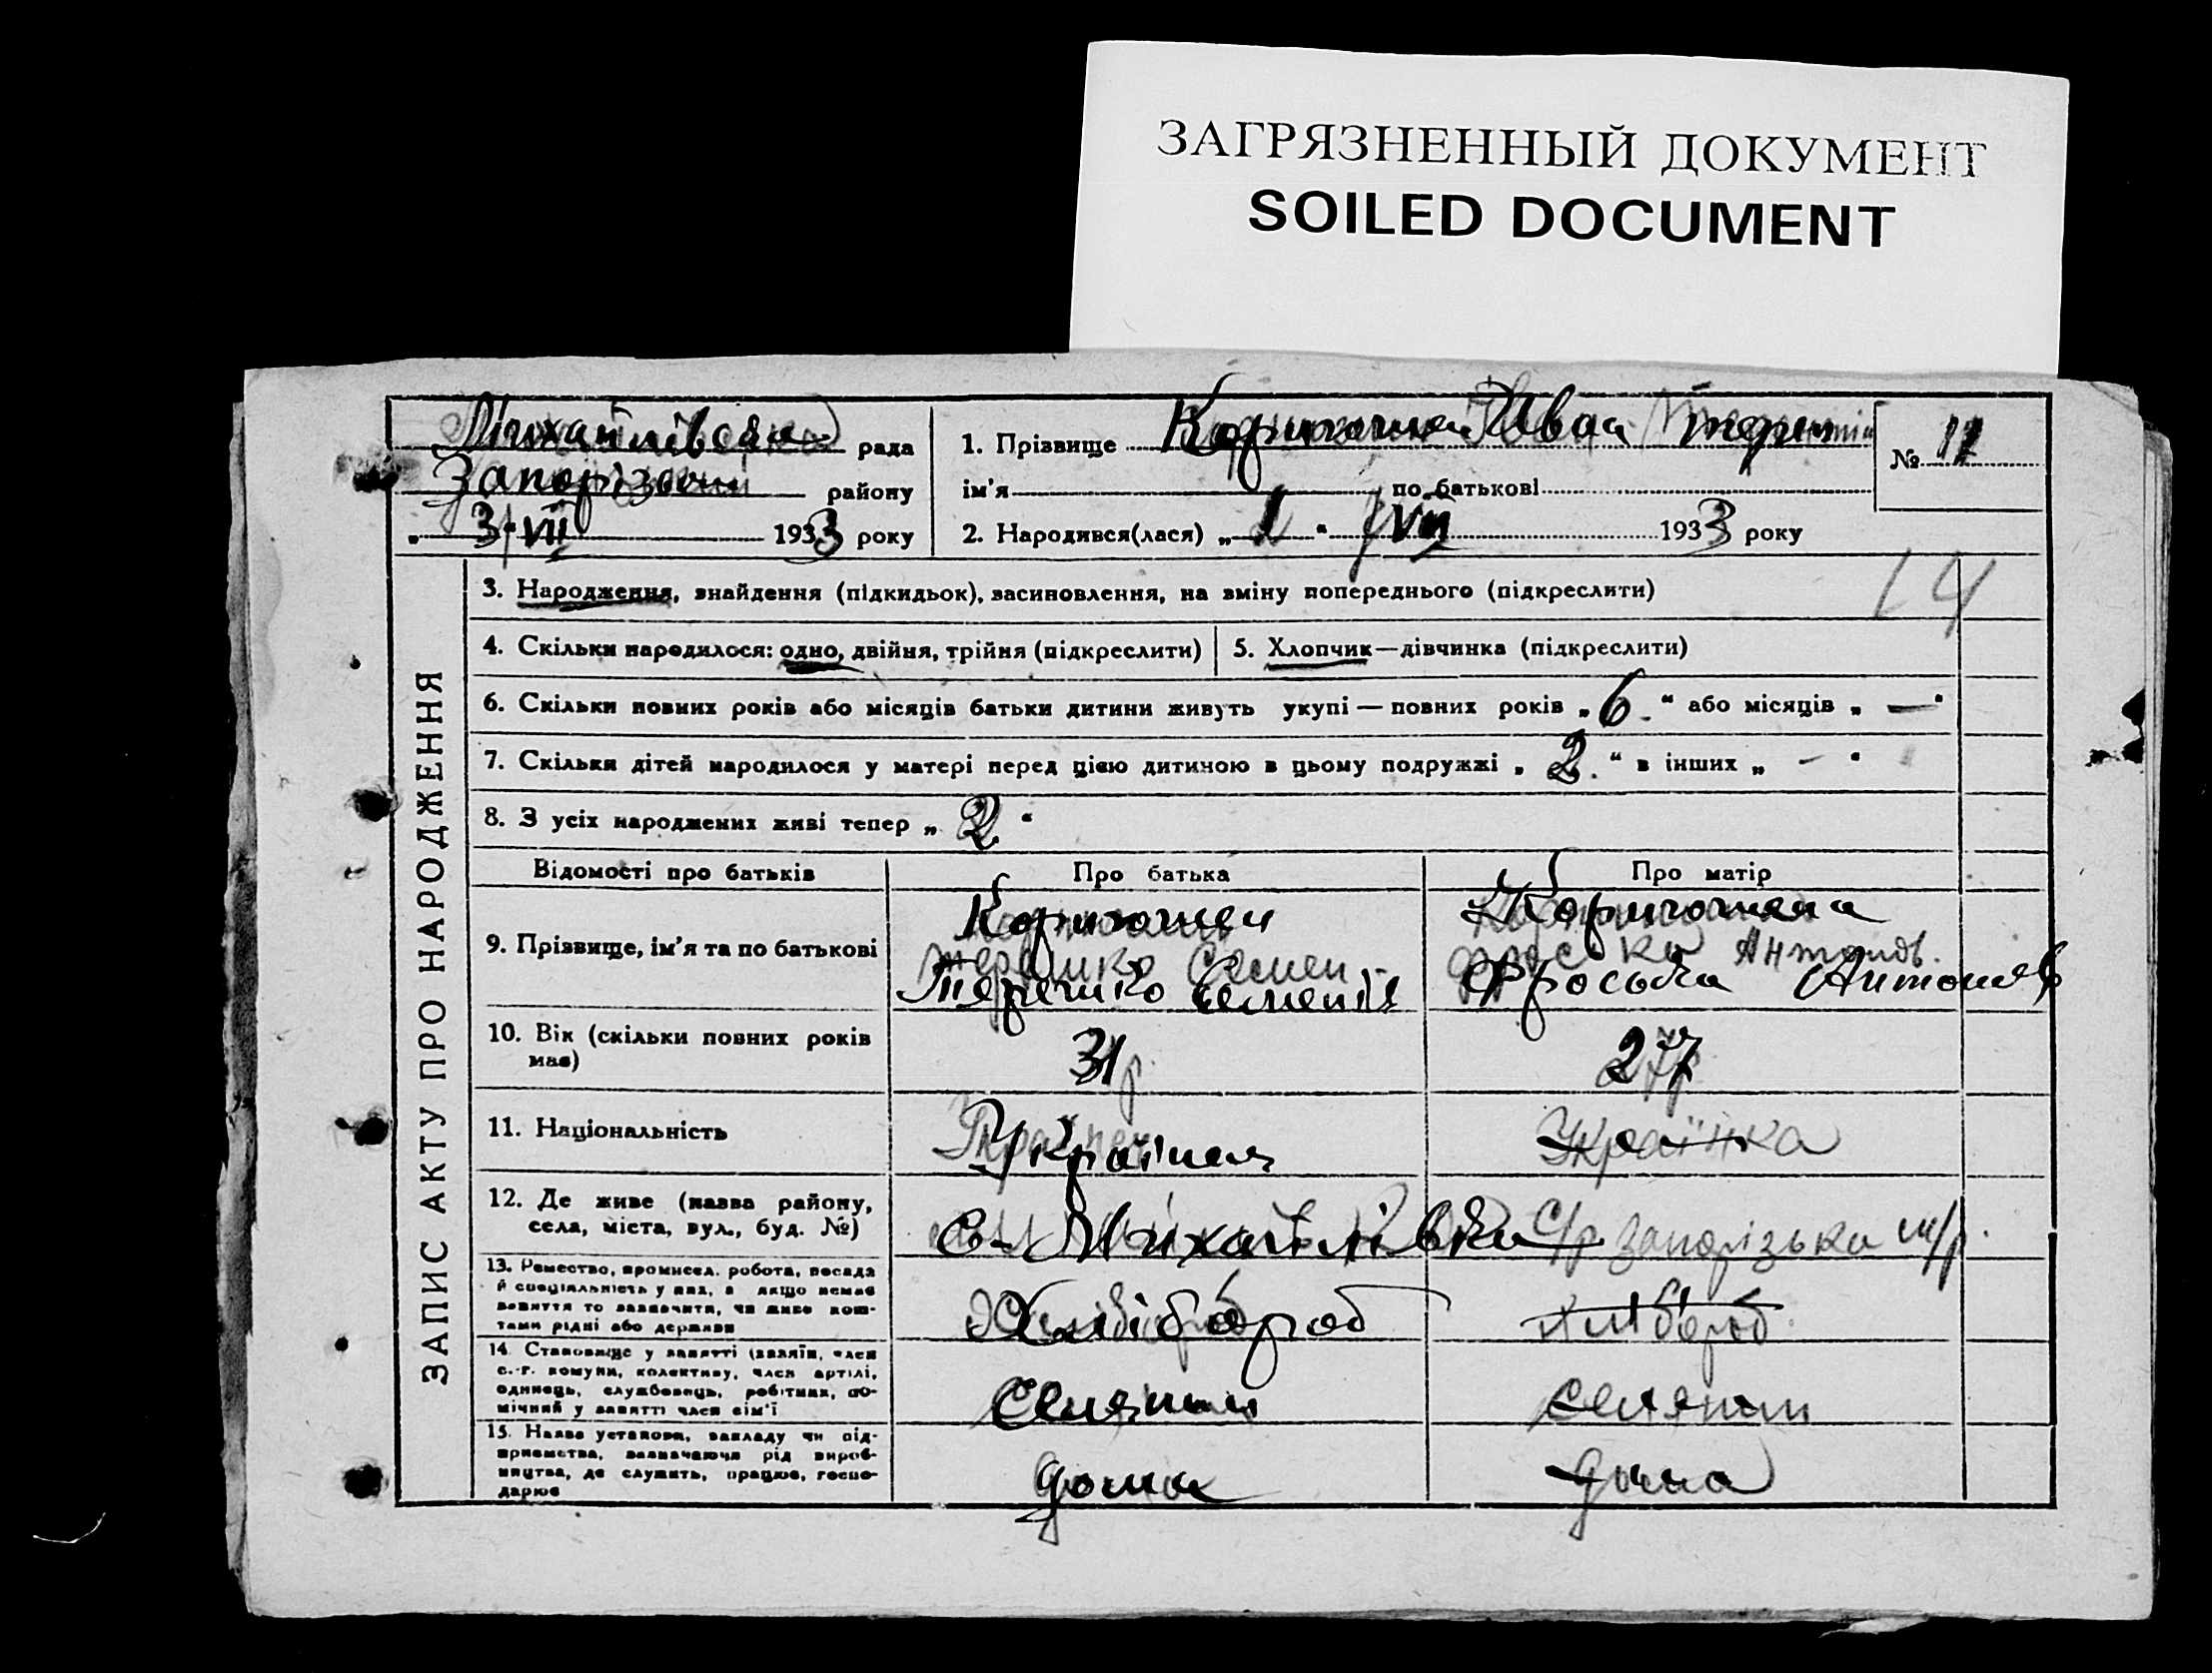 ЗАГРЯЗНЕННЫЙ ДОКУМЕНТ
SOILED DOCUMENT
Михайлівська рада
Запорізьк району
„ 3 " VII 1933 року
1. Прізвище Іван Терен
№ 11
ім'я по батькові
2. Народився(лася) „ 1 " VII 1933 року
ЗАПИС АКТУ ПРО НАРОДЖЕННЯ
3. Народження, знайдення (підкидьок), засиновлення, на зміну попереднього (підкреслити)
14
4. Скільки народилося: одно, двійня, трійня (підкреслити)
5. Хлопчик—дівчинка (підкреслити)
6. Скільки повних років або місяців батьки дитини живуть укупі — повних років „ 6. " або місяців „ — "
7. Скільки дітей народилося у матері перед цією дитиною в цьому подружжі „ 2. " в інших „ — "
8. З усіх народжених живі тепер „ 2 "
Відомості про батьків
Про батька
Про матір
9. Прізвище, ім'я та по батькові
Терешко Семен
Фроська Антонов.
10. Вік (скільки повних років має)
31 р.
27 р
11. Національність
Українец
Українка
12. Де живе (назва району,
села, міста, вул., буд. №)
с. Михайлівка С/р Запорізька м/р.
13. Ремество, промисел, робота, посада
й спеціяльність у них, а якщо немає
заняття то зазначити, чи живе кош-
тами рідні або держави
Хлібороб
Хлібороб
14. Становище у занятті (хазяїн, член
с.-г. комуни, колективу, член артілі,
одинець, службовець, робітник, по-
мічний у занятті член сім'ї
Селянин
Селянин
15. Назва установи, закладу чи під-
приємства, зазначаючи рід вироб-
ництва, де служить, працює, госпо-
дарює
дома
дома